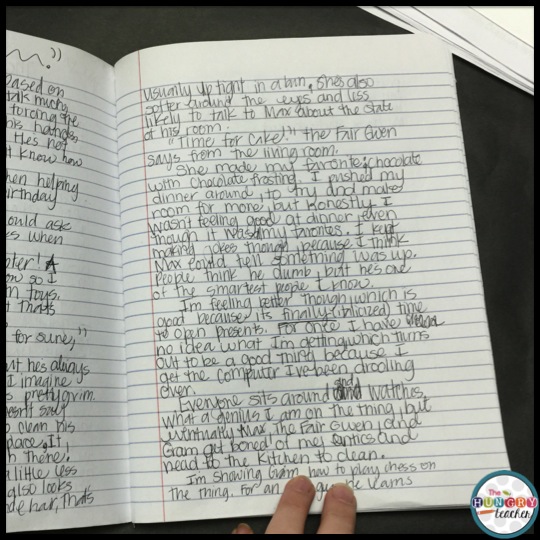 based on
talk much,
forcing the
his hands,
Hes not
t know how
hen helping
birthday
ould ask
s when
ow so I
m toys.
t thats
for sure,"
ut hes always
I imagine
s pretty grim.
esn't say
o clean his
pace. It
h there.
little less
also looks
de hair, that's
usually up tight in a bun. Shes also
softer around the eyes and less
likely to talk to Max about the state
of his room.
"Time for Cake!" the Fair Gwen
says from the living room.
She made my favorite: chocolate
with chocolate frosting. I pushed my
dinner around, to try and make
room for more but honestly I
wasn't feeling good at dinner, even
though it was my favorites. I kept
making jokes though, because I think
Max could tell something was up.
People think he dumb, but hes one
of the smartest people I know.
Im feeling better though, which is
good because its finally (italicized) time
to open presents. For once I have
no idea what Im getting which turns
out to be a good thing because I
get the computer I've been drooling
over.
Everyone sits around and watches,
what a genius I am on the thing, but
eventually Max, The Fair Gwen, and
Gram get bored of me antics and
head to the kitchen to clean.
Im showing Gram how to play chess on
the thing. For an
The
HUNGRY
teacher